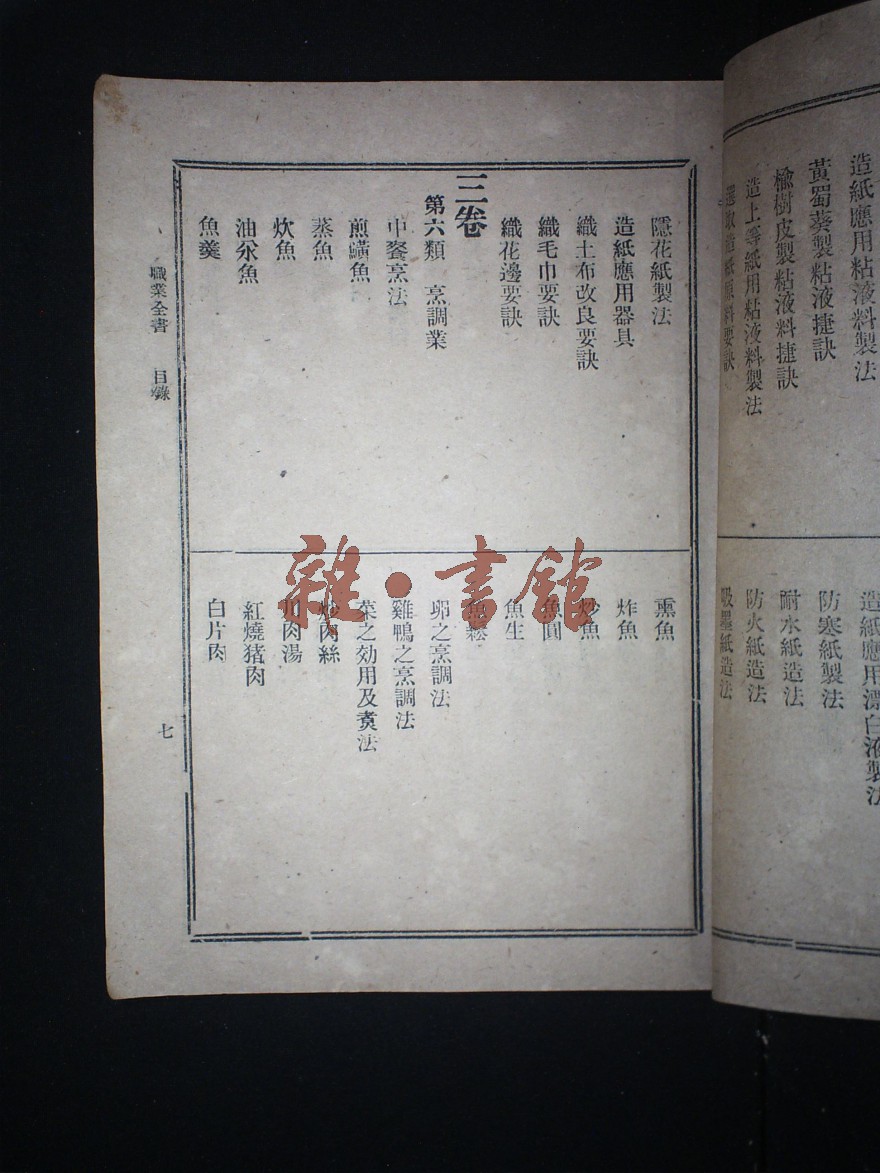 造紙應用粘液料製法
黃蜀葵製粘液捷訣
榆樹皮製粘液料捷訣
造上等紙用粘液料製法
選取造紙原料要訣
造紙應用漂白液製法
防寒紙製法
耐水紙造法
防火紙造法
吸墨紙造法
隱花紙製法
造紙應用器具
織土布改良要訣
織毛巾要訣
織花邊要訣
三卷
第六類 烹調業
中餐烹法
煎鱑魚
蒸魚
炊魚
油汆魚
魚羹
熏魚
炸魚
炒魚
魚圓
魚生
魚鬆
卵之烹調法
雞鴨之烹調法
菜之効用及煑法
炒肉絲
川肉湯
紅燒猪肉
白片肉
職業全書 目錄
七
雜·書館